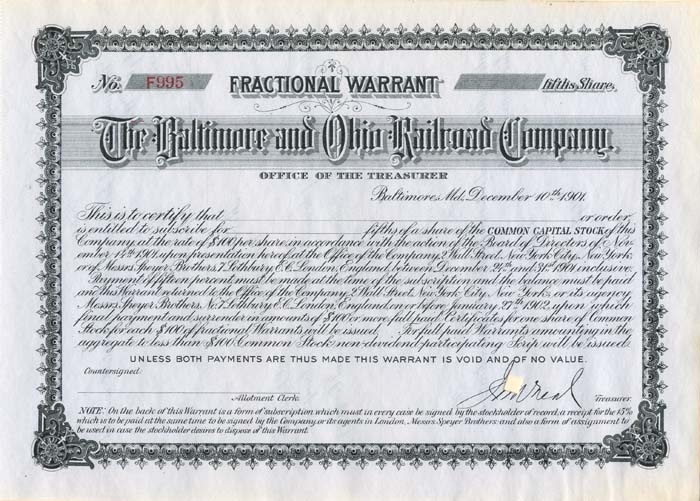 No. F995 FRACTIONAL WARRANT fifths Share.
The Baltimore and Ohio Railroad Company.
OFFICE OF THE TREASURER
Baltimore, Md., December 10th 1901.
This is to certify that or order,
is entitled to subscribe for fifths of a share of the COMMON CAPITAL STOCK of this
Company at the rate of $100 per share in accordance with the action of the Board of Directors of Nov-
ember 14th 1901, upon presentation hereof, at the Office of the Company, 2 Wall Street, New York City, New York,
or of Messrs Speyer Brothers, 7 Lothbury E.C. London, England, between December 2nd and 31st 1901 inclusive.
Payment of fifteen percent must be made at the time of the subscription and the balance must be paid
and this Warrant returned to the Office of the Company, 2 Wall Street, New York City, New York, or its agency,
Messrs Speyer Brothers, No 7 Lothbury E.C. London, England, on or before January 27th 1902, upon which
final payment and surrender in amounts of $100 or more full paid Certificates for one share of Common
Stock for each $100 of fractional Warrants will be issued. For full paid Warrants amounting in the
aggregate to less than $100 Common Stock non-dividend participating Scrip will be issued.
UNLESS BOTH PAYMENTS ARE THUS MADE THIS WARRANT IS VOID AND OF NO VALUE.
Countersigned:
Allotment Clerk. Treasurer.
NOTE: On the back of this Warrant is a form of subscription which must in every case be signed by the stockholder of record, a receipt for the 15%
which is to be paid at the same time to be signed by the Company or its agents in London, Messrs Speyer Brothers and also a form of assignment to
be used in case the stockholder desires to dispose of this Warrant.